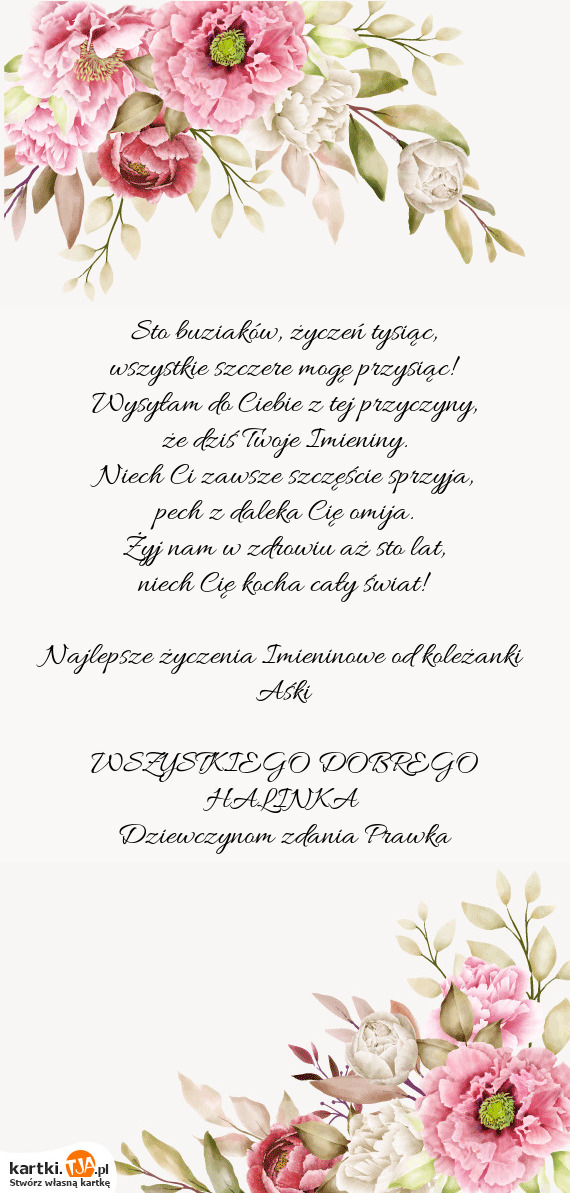 Sto buziaków, życzeń tysiąc,
wszystkie szczere mogę przysiąc!
Wysyłam do Ciebie z tej przyczyny,
że dziś Twoje Imieniny.
Niech Ci zawsze szczęście sprzyja,
pech z daleka Cię omija.
Żyj nam w zdrowiu aż sto lat,
niech Cię kocha cały świat!
Najlepsze życzenia Imieninowe od koleżanki
Aśki
WSZYSTKIEGO DOBREGO
HALINKA
Dziewczynom zdania Prawka
kartki.TJA.pl
Stwórz własną kartkę